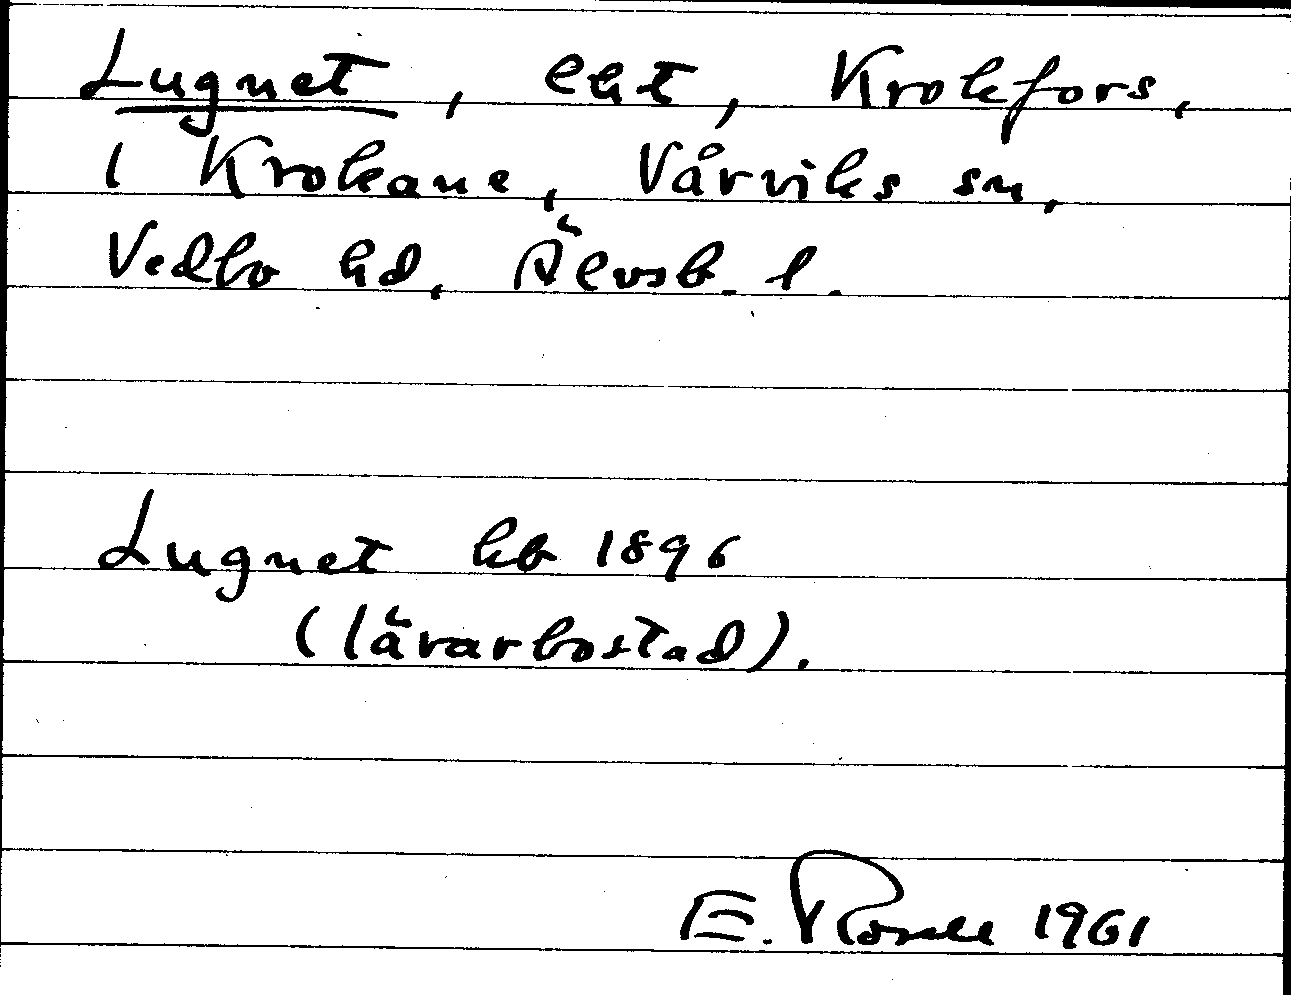 Lugnet, lht, Krokfors,
1 Krokane, Vårviks sn,
Vedbo hd, Älvsb. l.
Lugnet hb 1896
(lärarbostad).
E. Rosell 1961